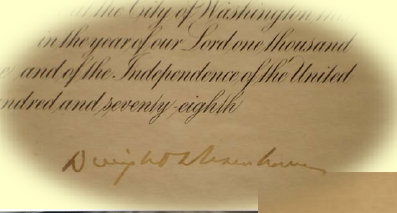 at the City of Washington
in the year of our Lord one thousand
and of the Independence of the United
ndred and seventy-eighth
Dwight D Eisenhower